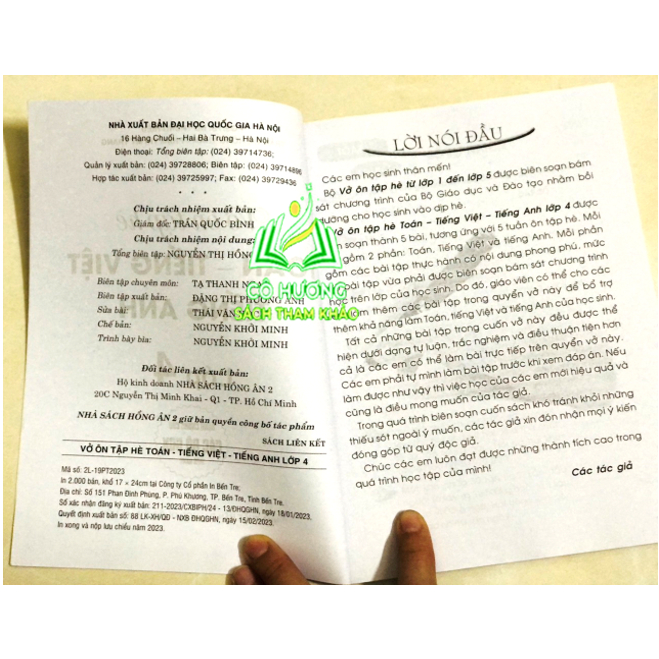 NHÀ XUẤT BẢN ĐẠI HỌC QUỐC GIA HÀ NỘI
16 Hàng Chuối – Hai Bà Trưng – Hà Nội
Điện thoại: Tổng biên tập: (024) 39714736;
Quản lý xuất bản: (024) 39728806; Biên tập: (024) 39714896
Hợp tác xuất bản: (024) 39725997; Fax: (024) 39729436
* * *
Chịu trách nhiệm xuất bản:
Giám đốc: TRẦN QUỐC BÌNH
Chịu trách nhiệm nội dung:
Tổng biên tập: NGUYỄN THỊ HỒNG
Biên tập chuyên môn: TẠ THANH
Biên tập xuất bản: ĐẶNG THỊ PHƯƠNG ANH
Sửa bài: THÁI VĂN
Chế bản: NGUYỄN KHÔI MINH
Trình bày bìa: NGUYỄN KHÔI MINH
Đối tác liên kết xuất bản:
Hộ kinh doanh NHÀ SÁCH HỒNG ÂN 2
20C Nguyễn Thị Minh Khai - Q1 - TP. Hồ Chí Minh
NHÀ SÁCH HỒNG ÂN 2 giữ bản quyền công bố tác phẩm
SÁCH LIÊN KẾT
VỞ ÔN TẬP HÈ TOÁN - TIẾNG VIỆT - TIẾNG ANH LỚP 4
Mã số: 2L-19PT2023
In 2.000 bản, khổ 17 × 24cm tại Công ty Cổ phần In Bến Tre;
Địa chỉ: Số 151 Phan Đình Phùng, P. Phú Khương, TP. Bến Tre, Tỉnh Bến Tre.
Số xác nhận đăng ký xuất bản: 211-2023/CXBIPH/24 - 13/ĐHQGHN, ngày 18/01/2023.
Quyết định xuất bản số: 88 LK-XH/QĐ - NXB ĐHQGHN, ngày 15/02/2023.
In xong và nộp lưu chiểu năm 2023.
CÔ HƯƠNG
SÁCH THAM KHẢO
LỜI NÓI ĐẦU
Các em học sinh thân mến!
Bộ Vở ôn tập hè từ lớp 1 đến lớp 5 được biên soạn bám
sát chương trình của Bộ Giáo dục và Đào tạo nhằm bồi
dưỡng cho học sinh vào dịp hè.
Vở ôn tập hè Toán – Tiếng Việt – Tiếng Anh lớp 4 được
soạn thành 5 bài, tương ứng với 5 tuần ôn tập hè. Mỗi
gồm 2 phần: Toán, Tiếng Việt và tiếng Anh. Mỗi phần
gồm các bài tập thực hành có nội dung phong phú, mức
bài tập vừa phải được biên soạn bám sát chương trình
học trên lớp của học sinh. Do đó, giáo viên có thể cho các
làm thêm các bài tập trong quyển vở này để bổ trợ
thêm khả năng làm Toán, tiếng Việt và tiếng Anh của học sinh.
Tất cả những bài tập trong cuốn vở này đều được thể
hiện dưới dạng tự luận, trắc nghiệm và điều thuận tiện hơn
cả là các em có thể làm bài trực tiếp trên quyển vở này.
Các em phải tự mình làm bài tập trước khi xem đáp án. Nếu
làm được như vậy thì việc học của các em mới hiệu quả và
cũng là điều mong muốn của tác giả.
Trong quá trình biên soạn cuốn sách khó tránh khỏi những
thiếu sót ngoài ý muốn, các tác giả xin đón nhận mọi ý kiến
đóng góp từ quý độc giả.
Chúc các em luôn đạt được những thành tích cao trong
quá trình học tập của mình!
Các tác giả